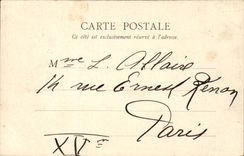 CARTE POSTALE
Ce côté est exclusivement réservé à l'adresse.
Mme L. Allaix
14 rue Ernest Renan
Paris
XVe